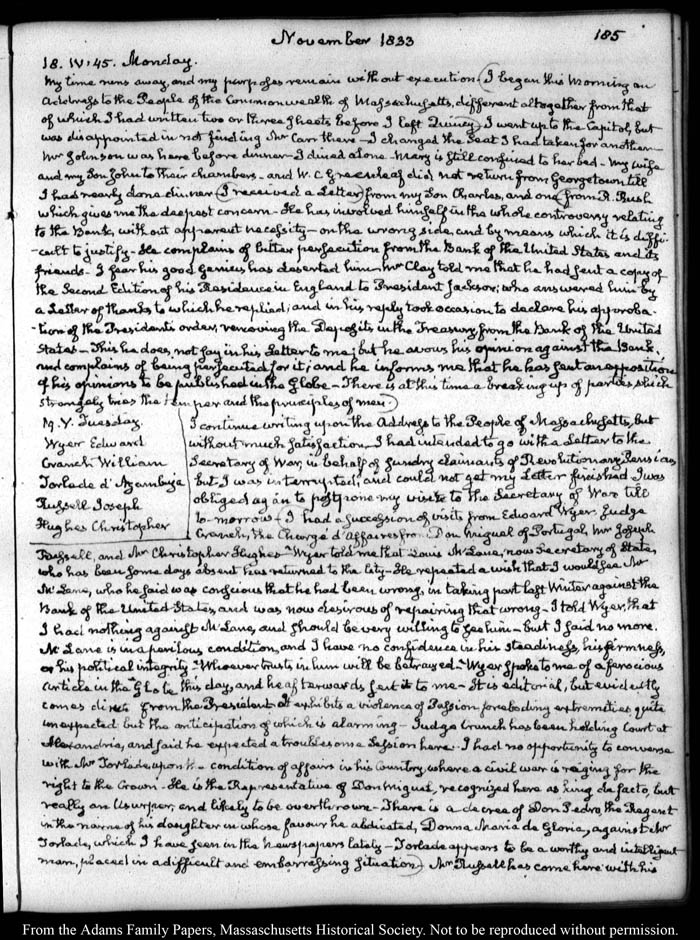 November 1833
185
18. IV:45. Monday.
My time runs away, and my purposes remain without execution. (I began this Morning an
Address to the People of the Commonwealth of Massachusetts, different altogether from that
of which I had written two or three sheets before I left Quincy) I went up to the Capitol, but
was disappointed in not finding Mr Carr there – I changed the Seat I had taken for another –
Mr Johnson was here before dinner – I dined alone – Mary is still confined to her bed – My wife
and my Son John to their chambers – and W. C. Greenleaf did not return from Georgetown till
I had nearly done dinner – (I received a Letter) from my Son Charles, and one (from R. Rush
which gives me the deepest concern – He has involved himself in the whole controversy relating
to the Bank, without apparent necessity – on the wrong side, and by means which it is diffi-
-cult to justify – He complains of bitter persecution from the Bank of the United States and its
friends – I fear his good Genius has deserted him – Mr Clay told me that he had sent a copy of
the Second Edition of his Residence in England to President Jackson; who answered him by
a Letter of thanks to which he replied; and in his reply took occasion to declare his approba-
-tion of the President's orders, removing the Deposits in the Treasury from the Bank of the United
States – This he does not say in his Letter to me; but he avows his opinion against the Bank;
and complains of being persecuted for it; and he informs me that he has sent an exposition
of his opinions to be published in the Globe – There is at this time a breaking up of parties which
strangely tries the temper and the principles of men)
19. V. Tuesday.
Wyer Edward
Cranch William
Torlade d'Azambuja
Russell Joseph
Hughes Christopher
I continue writing upon the Address to the People of Massachusetts, but
without much satisfaction – I had intended to go with a Letter to the
Secretary of War, in behalf of sundry claimants of Revolutionary Pensions
but I was interrupted; and could not get my Letter finished. I was
obliged again to postpone my visit to the Secretary of War till
to-morrow – (I had a succession of visits from Edward Wyer, Judge
Cranch, the Chargé d'affaires from Don Miguel of Portugal, Mr Joseph
Russell, and Mr Christopher Hughes – Wyer told me that Louis McLane, now Secretary of State,
who has been some days absent has returned to the City – He repeated a wish that I would see Mr
McLane, who he said was conscious that he had been wrong, in taking part last Winter against the
Bank of the United States, and was now desirous of repairing that wrong – I told Wyer, that
I had nothing against McLane, and should be very willing to see him – but I said no more.
McLane is in a perilous condition, and I have no confidence in his steadiness, his firmness,
or his political integrity – Whoever trusts in him will be betrayed – Wyer spoke to me of a ferocious
article in the Globe this day, and he afterwards sent it to me – It is editorial, but evidently
comes direct from the President. It exhibits a violence of Passion foreboding extremities quite
unexpected but the anticipation of which is alarming – Judge Cranch has been holding Court at
Alexandria, and said he expected a troublesome Session here. I had no opportunity to converse
with Mr Torlade upon the condition of affairs in his Country, where a civil war is raging for the
right to the Crown – He is the Representative of Don Miguel, recognized here as king de facto, but
really an Usurper, and likely to be overthrown – There is a decree of Don Pedro, the Regent
in the name of his daughter in whose favour he abdicated, Donna Maria de Gloria, against Mr
Torlade, which I have seen in the newspapers lately – Torlade appears to be a worthy and intelligent
man, placed in a difficult and embarrassing situation) Mr Russell has come here with his
From the Adams Family Papers, Massachusetts Historical Society. Not to be reproduced without permission.